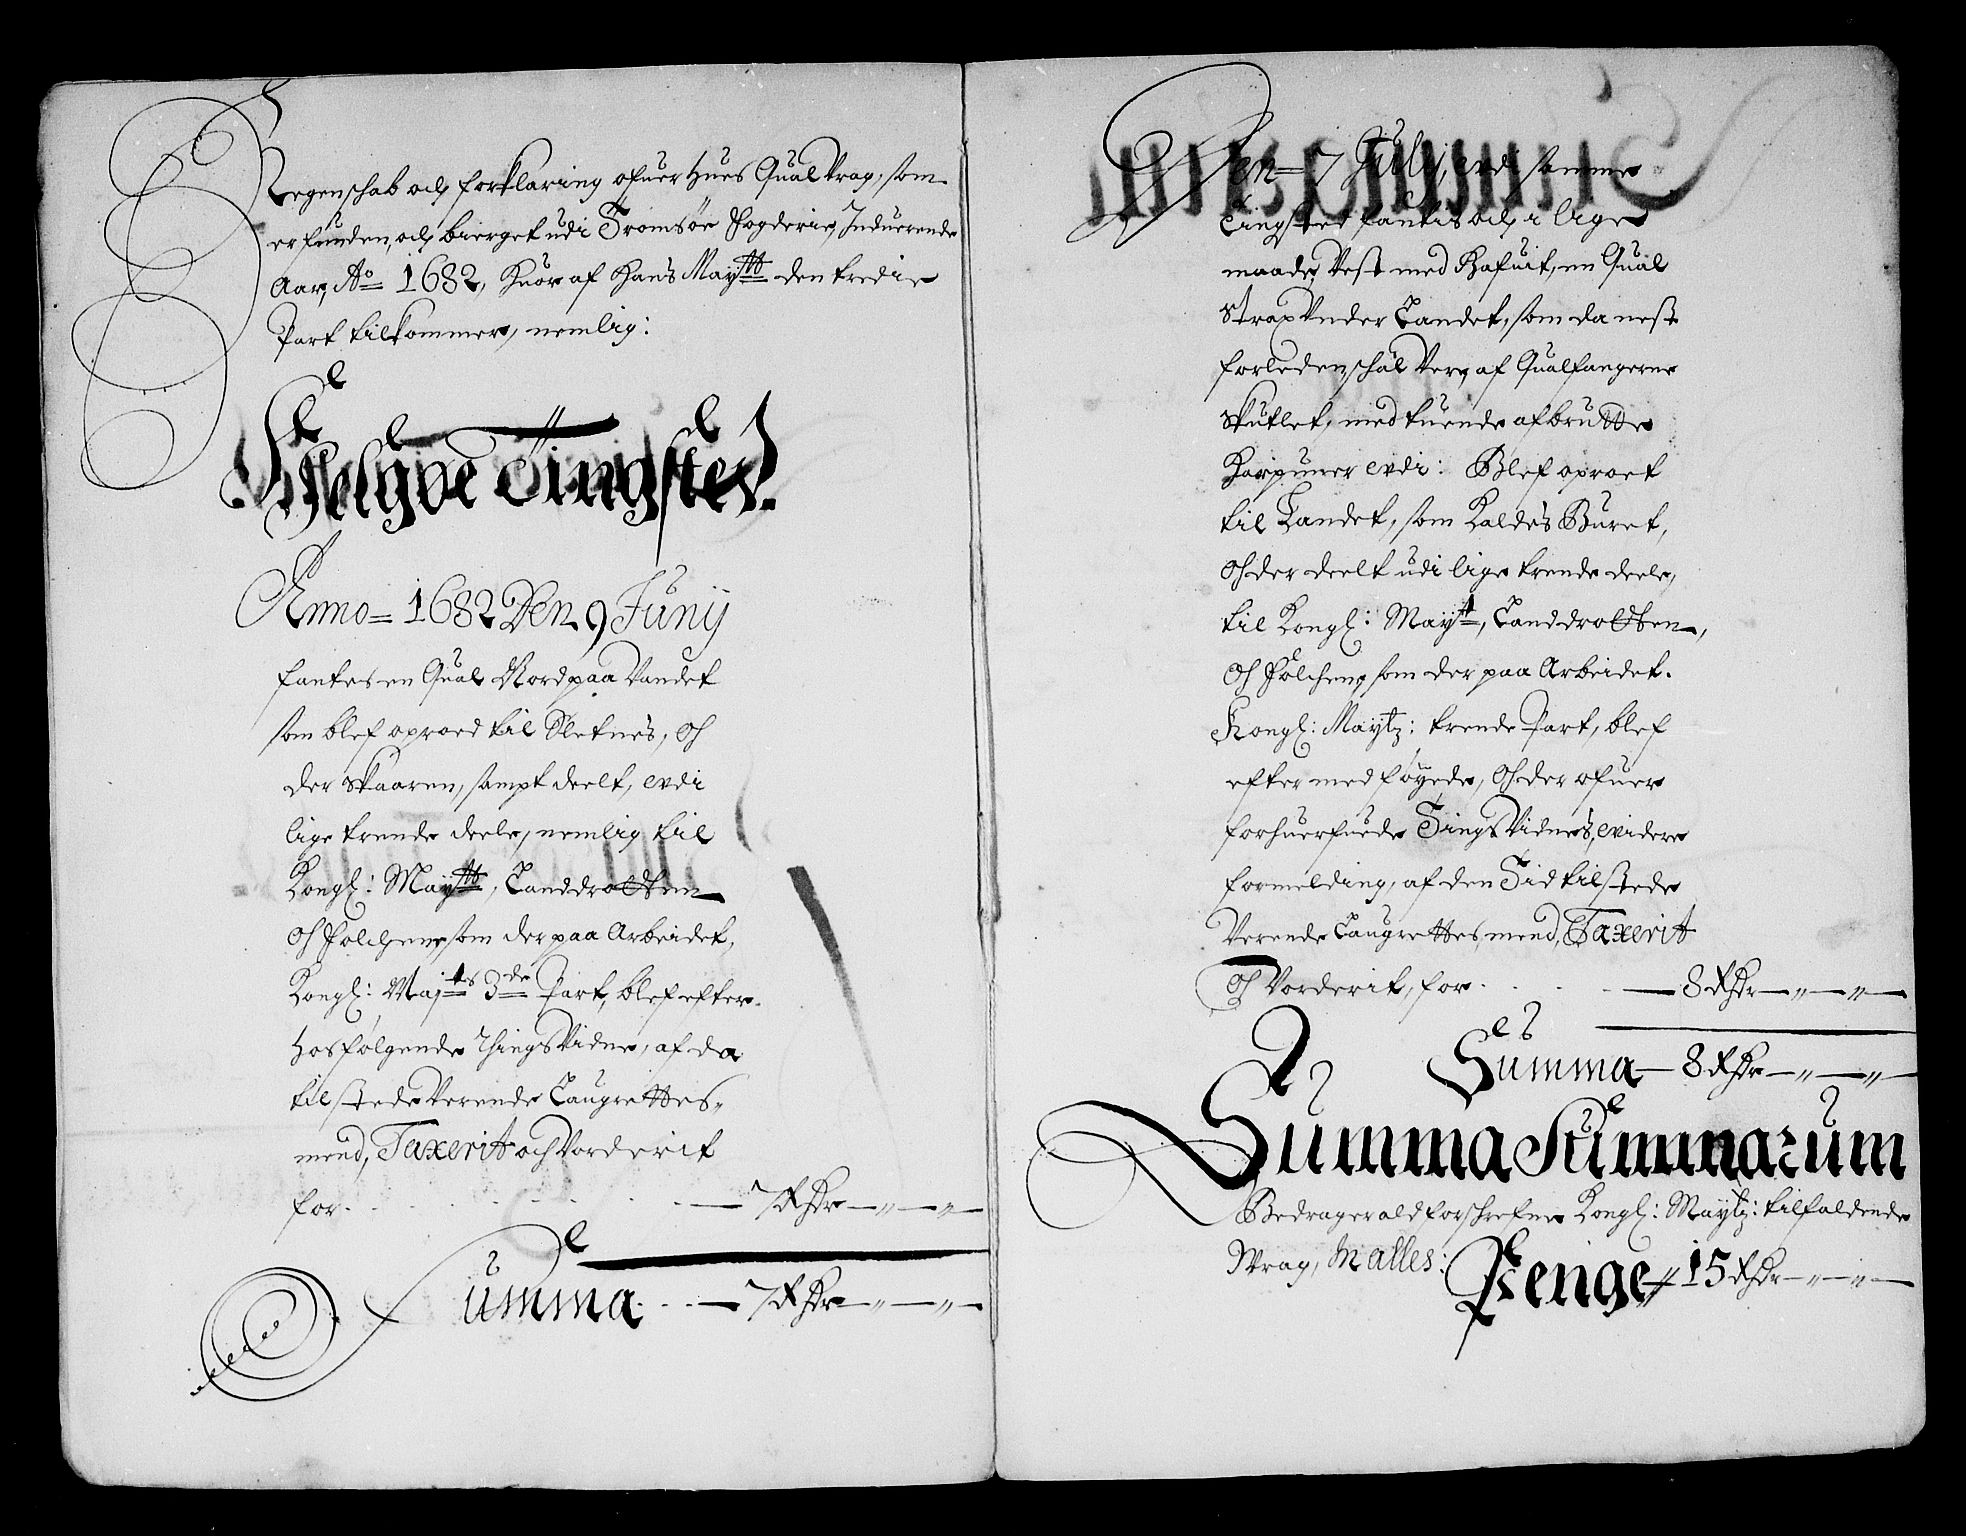 Regenschab och forklaring ofuer hues Qual Vrag, som
er funden, och bierget udi Tromsöe Fogderie, Induerende
Aar, Ao 1682, huor af Hans Maytts den tredie
Part tilkommer, nemlig:
Helgöe Tingsted.
Anno = 1682 Den 9 Junij
fantes en Qual Nord paa Vandet
som blef oproed til Sletnes, oh
der skaaren, sampt deelt, evdi
lige trende deele, nemlig til
Kongl: Maytts, Landdrotten
oh Folchene, som der paa Arbeidet,
Kongl: Majts 3de Part, blef efter
hosfølgende ThingsVidne, af da
tilstede Verende Laugrettes-
mend, Taxerit och Vorderit
for. 7 Rdr
Summa 7 Rdr
Den 7 Julij, evdi samme
Tingsted fantes och i lige
maade, Vest med Hafuit, en Qual
strax Vnder Landet, som da nest
forleden, schal Vere, af Qualfangerne
skutlet, med tuende afbrutte
Harpuner evdi: Blef oproet
til Landet, som Kaldes Buret,
oh der deelt udi lige trende deele,
til Kongl: Mayt, Landdrotten,
oh Folchene, som der paa Arbeidet.
Kongl: Maytz: trende Part, blef
efter medføyede, oh der ofuer
forhuerfuede TingsVidnes, evidere
formelding, af den Tid tilstede
Verende Laugrettes mend, Taxerit
oh Vorderit, for 8 Rdr
Summa 8 Rdr
Summa Summarum
Bedrager ald forschrefne Kongl: Maytz: tilfaldende
Vrag, In alles: Penge 15 Rdr